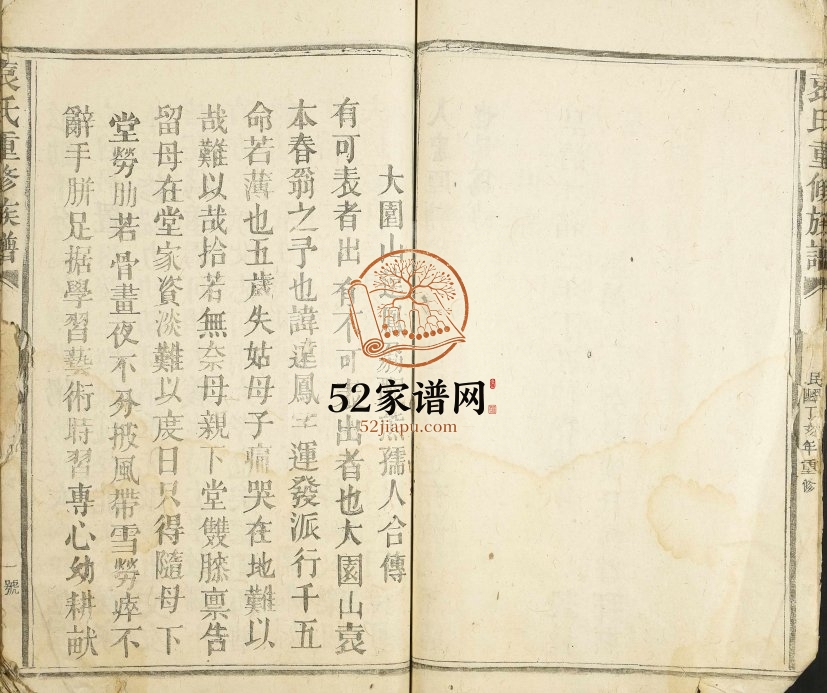 袁氏重修族譜
民國丁亥年重修
大園山 孺人合傳
有可表者出 有不可 出者也大園山袁
本春翁之子也諱達鳳字運發派行千五
命若薄也五歲失姑母子痛哭在地難以
哉難以哉拾若無奈母親下堂雙膝禀告
留母在堂家資淡難以度日只得隨母下
堂勞肋若骨晝夜不分披風帶雪勞瘁不
辭手胼足据學習藝術時習專心幼耕畎
袁氏重修族譜
一號
52家谱网
52jiapu.com